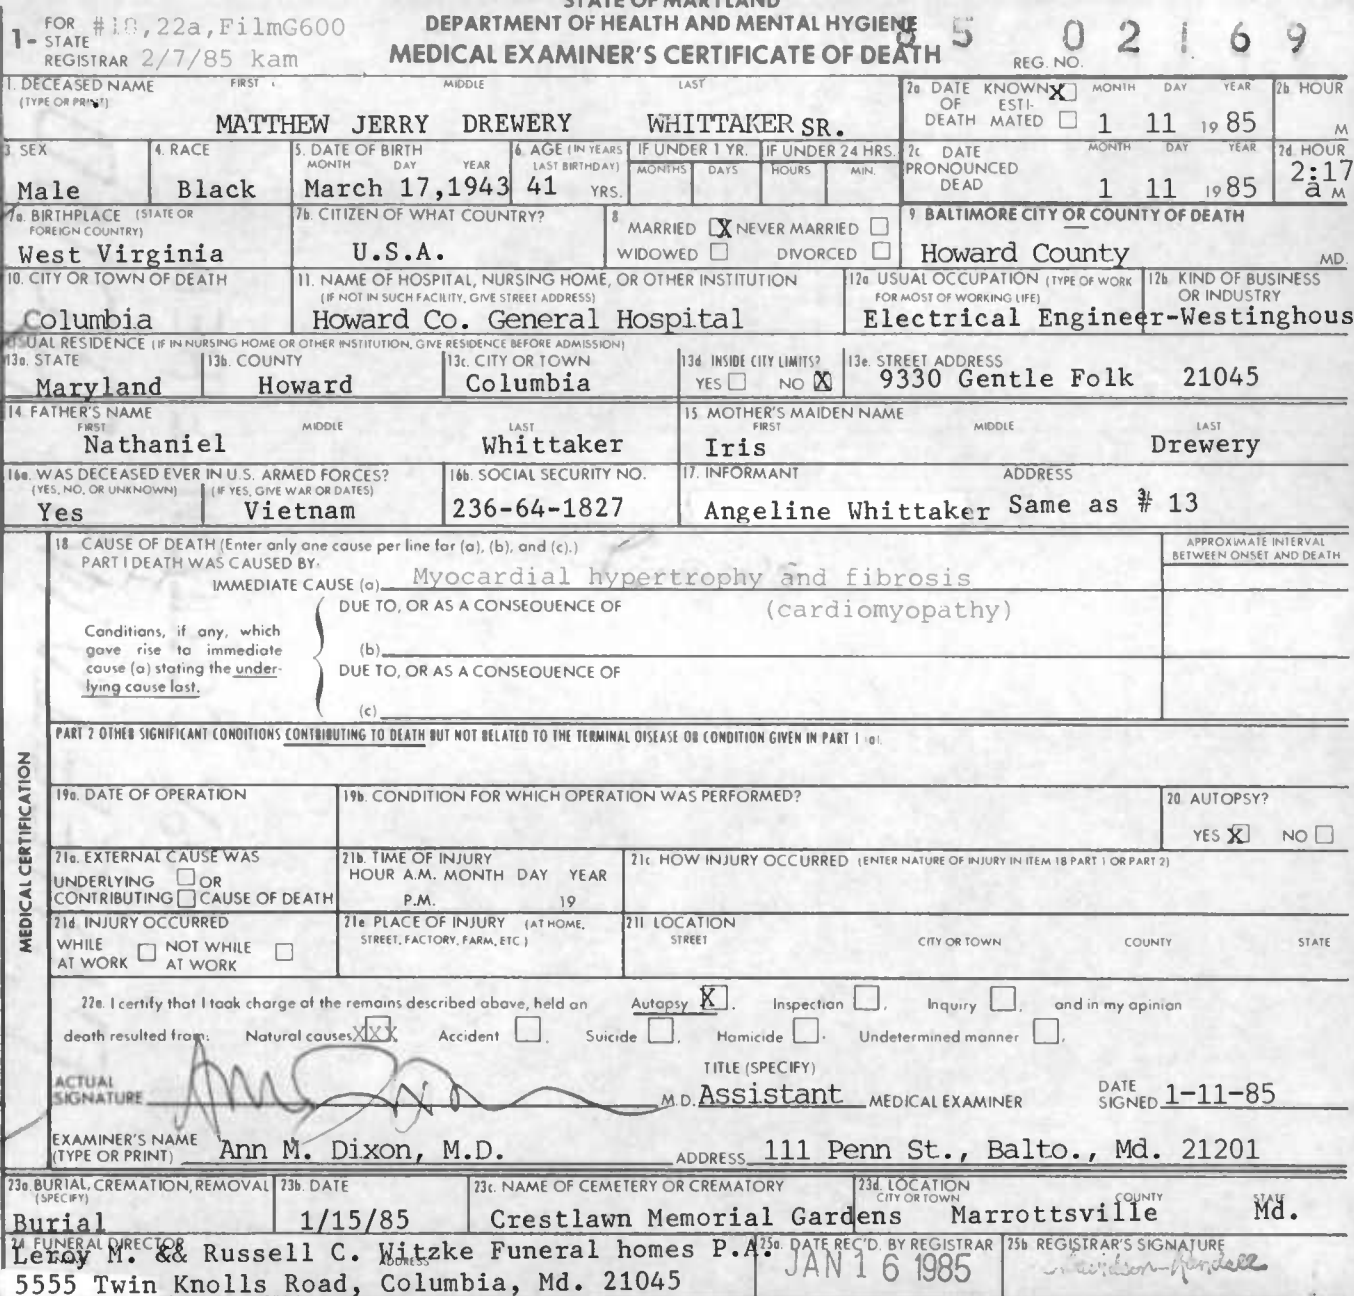 STATE OF MARYLAND
DEPARTMENT OF HEALTH AND MENTAL HYGIENE
MEDICAL EXAMINER'S CERTIFICATE OF DEATH
1- FOR STATE REGISTRAR #18,22a,FilmG600
2/7/85 kam
REG. NO. 85 02169
1. DECEASED NAME (TYPE OR PRINT) FIRST MIDDLE LAST
MATTHEW JERRY DREWERY WHITTAKER SR.
2a DATE OF DEATH KNOWN X ESTIMATED MONTH DAY YEAR
1 11 1985
2b HOUR M
3. SEX
Male
4. RACE
Black
5. DATE OF BIRTH MONTH DAY YEAR
March 17,1943
6. AGE (IN YEARS LAST BIRTHDAY)
41 YRS.
IF UNDER 1 YR. MONTHS DAYS
IF UNDER 24 HRS. HOURS MIN.
2c DATE PRONOUNCED DEAD MONTH DAY YEAR
1 11 1985
2d. HOUR
2:17 a M
7a. BIRTHPLACE (STATE OR FOREIGN COUNTRY)
West Virginia
7b. CITIZEN OF WHAT COUNTRY?
U.S.A.
8 MARRIED X NEVER MARRIED
WIDOWED DIVORCED
9 BALTIMORE CITY OR COUNTY OF DEATH
Howard County MD.
10. CITY OR TOWN OF DEATH
Columbia
11. NAME OF HOSPITAL, NURSING HOME, OR OTHER INSTITUTION
(IF NOT IN SUCH FACILITY, GIVE STREET ADDRESS)
Howard Co. General Hospital
12a USUAL OCCUPATION (TYPE OF WORK FOR MOST OF WORKING LIFE)
12b KIND OF BUSINESS OR INDUSTRY
Electrical Engineer-Westinghous
USUAL RESIDENCE (IF IN NURSING HOME OR OTHER INSTITUTION, GIVE RESIDENCE BEFORE ADMISSION)
13a. STATE
Maryland
13b. COUNTY
Howard
13c. CITY OR TOWN
Columbia
13d INSIDE CITY LIMITS?
YES NO X
13e. STREET ADDRESS
9330 Gentle Folk 21045
14 FATHER'S NAME
FIRST MIDDLE LAST
Nathaniel Whittaker
15 MOTHER'S MAIDEN NAME
FIRST MIDDLE LAST
Iris Drewery
16a. WAS DECEASED EVER IN U.S. ARMED FORCES?
(YES, NO, OR UNKNOWN) (IF YES, GIVE WAR OR DATES)
Yes Vietnam
16b. SOCIAL SECURITY NO.
236-64-1827
17. INFORMANT ADDRESS
Angeline Whittaker Same as # 13
MEDICAL CERTIFICATION
18 CAUSE OF DEATH (Enter only one cause per line for (a), (b), and (c).)
PART I DEATH WAS CAUSED BY:
APPROXIMATE INTERVAL BETWEEN ONSET AND DEATH
IMMEDIATE CAUSE (a) Myocardial hypertrophy and fibrosis
DUE TO, OR AS A CONSEQUENCE OF (cardiomyopathy)
Conditions, if any, which gave rise to immediate cause (a) stating the underlying cause last.
(b)
DUE TO, OR AS A CONSEQUENCE OF
(c)
PART 2 OTHER SIGNIFICANT CONDITIONS CONTRIBUTING TO DEATH BUT NOT RELATED TO THE TERMINAL DISEASE OR CONDITION GIVEN IN PART I (a)
19a. DATE OF OPERATION
19b. CONDITION FOR WHICH OPERATION WAS PERFORMED?
20 AUTOPSY?
YES X NO
21a. EXTERNAL CAUSE WAS
UNDERLYING OR
CONTRIBUTING CAUSE OF DEATH
21b. TIME OF INJURY
HOUR A.M. MONTH DAY YEAR
P.M. 19
21c HOW INJURY OCCURRED (ENTER NATURE OF INJURY IN ITEM 18 PART 1 OR PART 2)
21d INJURY OCCURRED
WHILE AT WORK NOT WHILE AT WORK
21e PLACE OF INJURY (AT HOME, STREET, FACTORY, FARM, ETC)
21f LOCATION
STREET CITY OR TOWN COUNTY STATE
22a. I certify that I took charge of the remains described above, held an Autopsy X, Inspection, Inquiry, and in my opinion
death resulted from: Natural causes XXX, Accident, Suicide, Homicide, Undetermined manner,
ACTUAL SIGNATURE M.D. TITLE (SPECIFY) Assistant MEDICAL EXAMINER DATE SIGNED 1-11-85
EXAMINER'S NAME (TYPE OR PRINT) Ann M. Dixon, M.D. ADDRESS 111 Penn St., Balto., Md. 21201
23a. BURIAL, CREMATION, REMOVAL (SPECIFY)
Burial
23b. DATE
1/15/85
23c. NAME OF CEMETERY OR CREMATORY
Crestlawn Memorial Gardens
23d. LOCATION CITY OR TOWN COUNTY STATE
Marrottsville Md.
24 FUNERAL DIRECTOR ADDRESS
Leroy M. && Russell C. Witzke Funeral homes P.A.
5555 Twin Knolls Road, Columbia, Md. 21045
25a. DATE REC'D. BY REGISTRAR
JAN 16 1985
25b REGISTRAR'S SIGNATURE